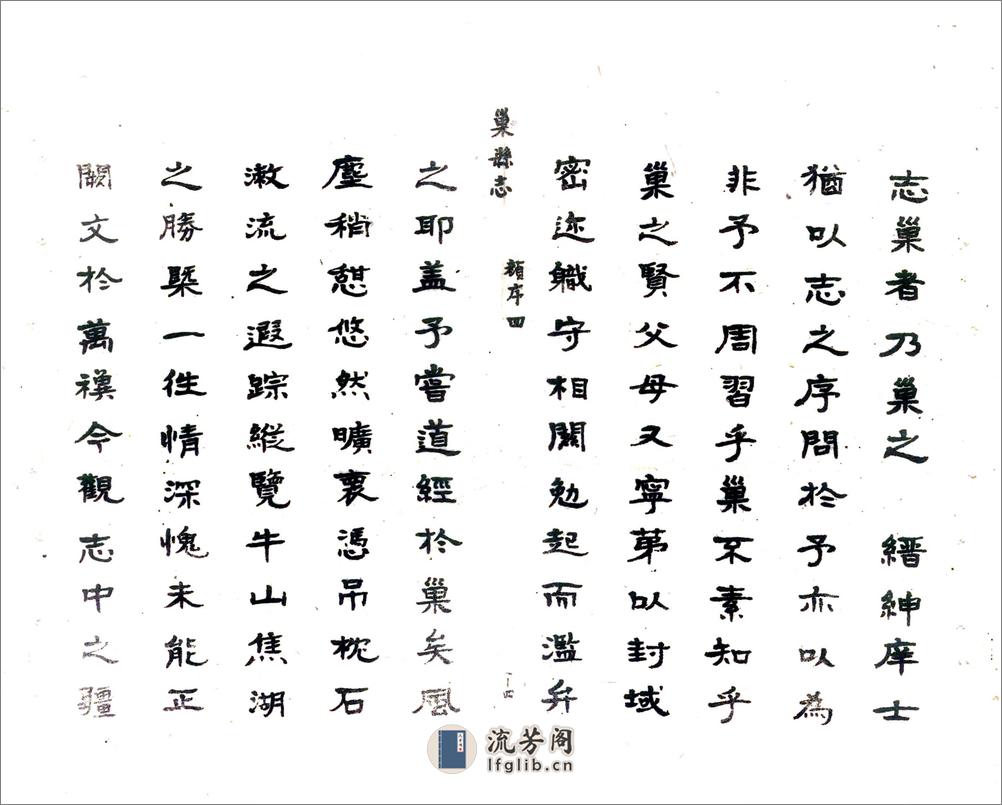 志巢者乃巢之　縉紳庠士
猶以志之序問於予亦以為
非予不周習乎巢不素知乎
巢之賢父母又寧第以封域
密迩職守相關勉起而濫弁
巢縣志
序四
一四
之耶盖予嘗道經於巢矣風
塵稍憇悠然曠襄憑吊枕石
漱流之遐踪縱覽牛山焦湖
之勝槩一徃情深愧未能正
闕文於萬禩今觀志中之疆
流芳阁
lfglib.cn